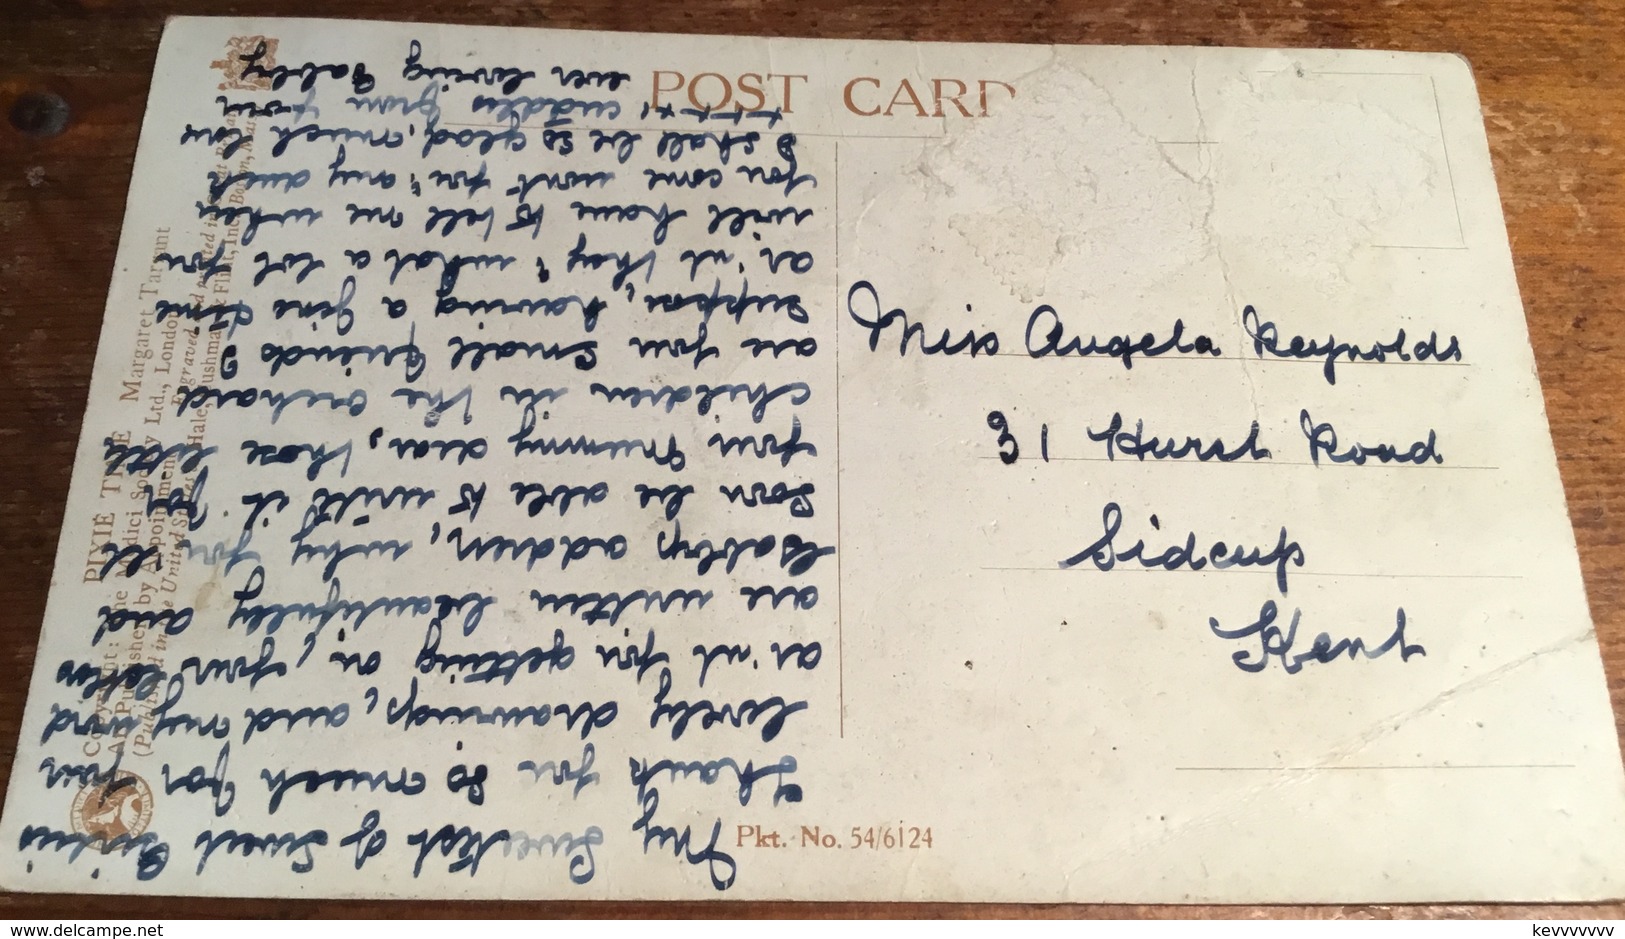 POST CARD
Miss Angela Reynolds
31 Hurst Road
Sidcup
Kent
My Sweetest of Sweet Girlies
Thank you so much for your
lovely drawings, and my word
ar'nt you getting on, your letters
are written beautifully and
Gabbys address, why you'll
soon be able to write it for
you Mummy dear, those little
children in the orchard
are you small friends?
suppose, having a fine time
ar'nt they; what a lot you
will have to tell me when
you come wont you; any
I shall be so glad, much love
cuddles from your
ever loving Gabby
PIXIE TREE Margaret Tarrant
Copyright: The Medici Society Ltd., London
Art Publishers by Appointment
Engraved and printed in Great Britain
(Published in the United States by Hale, Cushman & Flint, Inc., Boston, Mass.)
Pkt. No. 54/6124
www.delcampe.net
kevvvvvvv